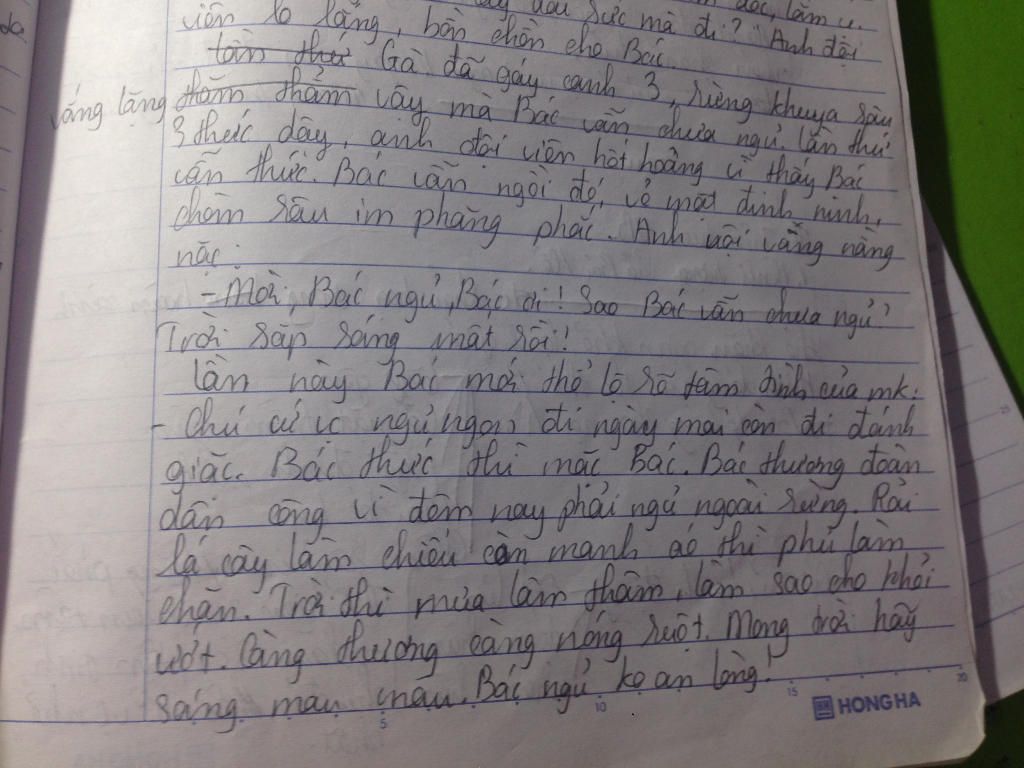 lấy đâu sức mà đi? Anh đội
viên lo lắng, bồn chồn cho Bác
tần thứ Gà đã gáy canh 3, rừng khuya sâu
váng lặng thăm thẳm vậy mà Bác vẫn chưa ngủ. Lần thứ
3 thức dậy, anh đội viên hốt hoảng vì thấy Bác
vẫn thức. Bác vẫn ngồi đó, vẻ mặt đinh ninh,
chòm râu im phăng phắc. Anh vội vàng nằng
nặc:
- Mời Bác ngủ, Bác ơi! Sao Bác vẫn chưa ngủ?
Trời sắp sáng mất rồi!
Lần này Bác mới thổ lộ rõ tâm tình của mk:
- Chú cứ vc ngủ ngon, đi ngày mai còn đi đánh
giặc. Bác thức thì mặc Bác. Bác thương đoàn
dân công vì đêm nay phải ngủ ngoài rừng. Rải
lá cây làm chiếu còn manh áo thì phủ làm
chăn. Trời thì mưa lâm thâm, làm sao cho khỏi
ướt. Càng thương càng nóng ruột. Mong trời hãy
sáng mau mau. Bác ngủ ko an lòng!
5 10 15 20
HONG HA